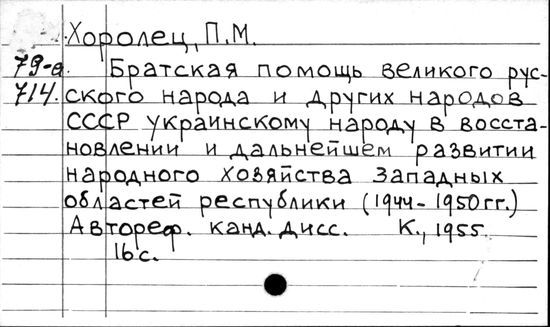 Хоролец, П.М.
79-а Братская помощь великого рус-
714. ского народа и других народов
СССР украинскому народу в восста-
новлении и дальнейшем развитии
народного хозяйства западных
областей республики (1944-1950гг.)
Автореф. канд. дисс. К., 1955.
16 с.